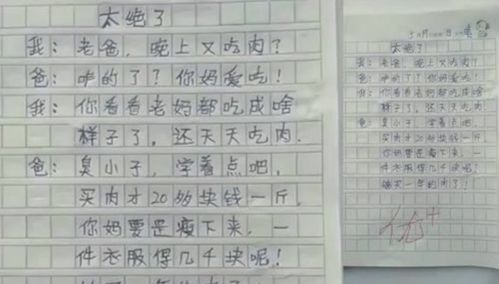 太绝了
我：老爸，晚上又吃肉？
爸：咋的了？你妈爱吃！
我：你看看老妈都吃成啥
样子了，还天天吃肉。
爸：臭小子，学着点吧，
买肉才20多块钱一斤，
你妈要是瘦下来，一
件衣服得几千块呢！
太绝了
我：老爸，晚上又吃肉？
爸：咋的了？你妈爱吃！
我：你看看老妈都吃成啥
样子了，还天天吃肉。
爸：臭小子，学着点吧，
买肉才20多块钱一斤
你妈要是瘦下来，一
件衣服得几千块呢！
够买一年的肉了！
优+